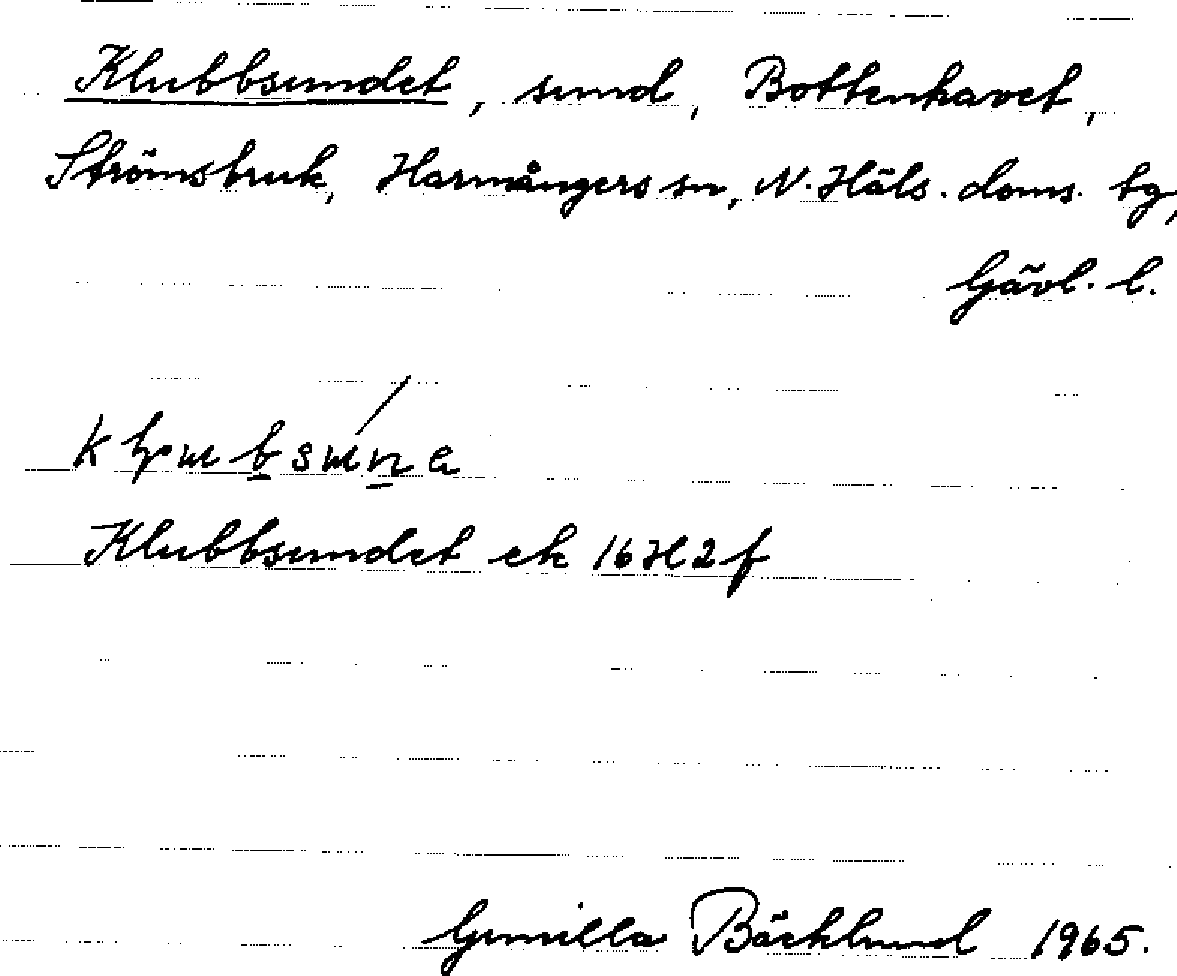 Klubbsundet, sund, Bottenhavet,
Strömsbruk, Harmångers sn, N. Häls. doms. tg,
Gävl. l.
Klubbsundet ek 16H2f
Gunilla Bäcklund 1965.